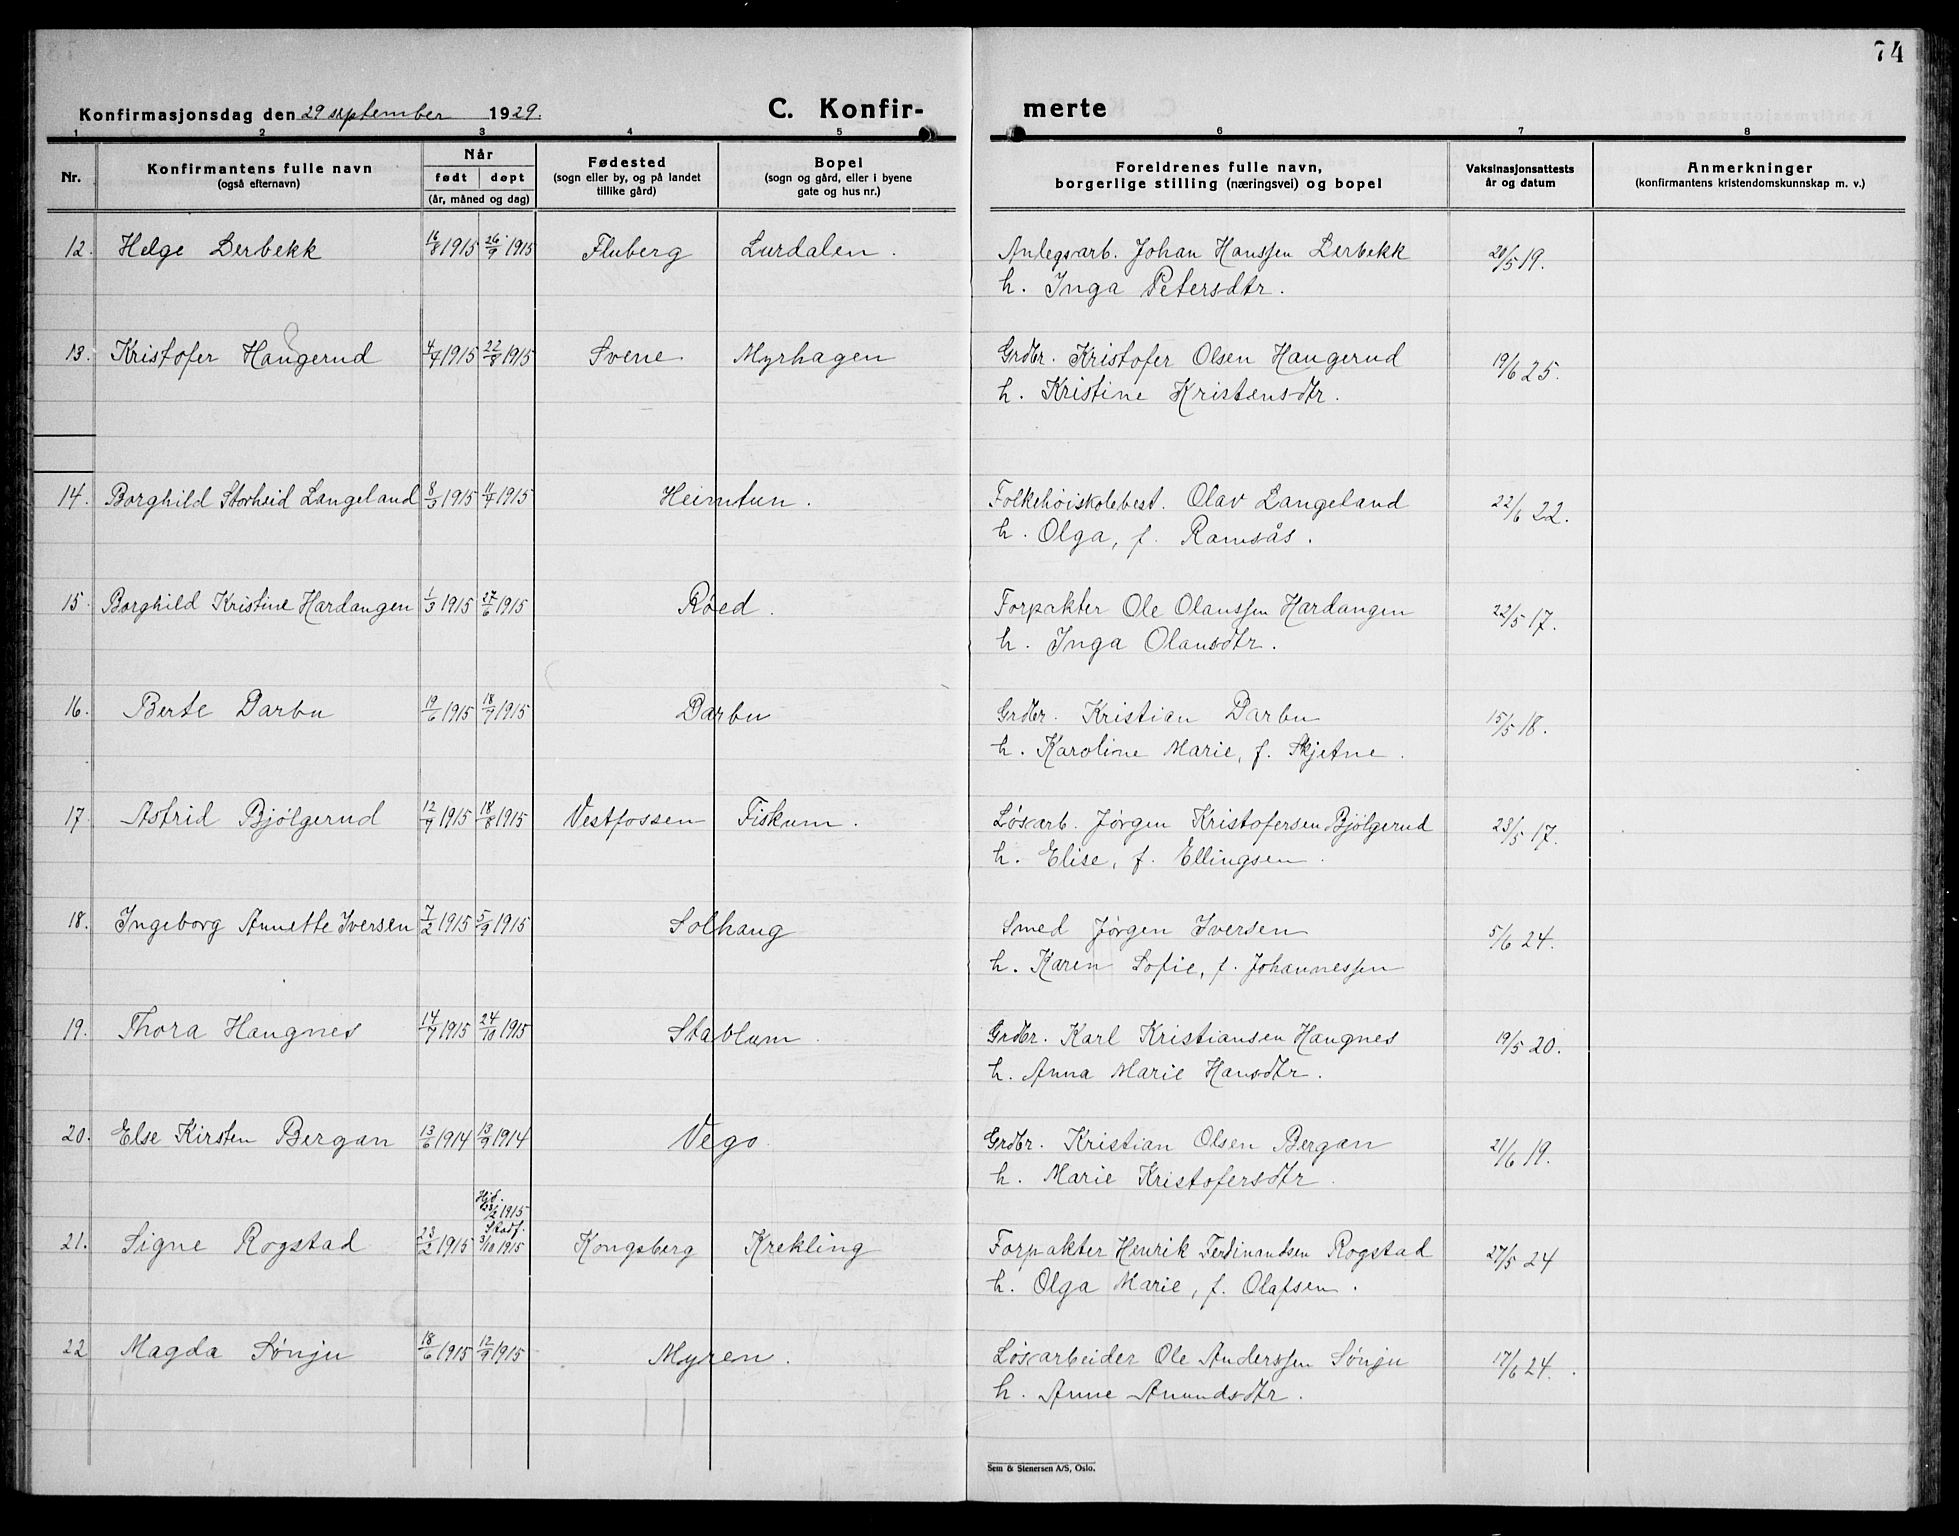 74
Konfirmasjonsdag den 29 september 1929. C. Konfir- merte
1 2 3 4 5 6 7 8
Nr. Konfirmantens fulle navn (også efternavn) Når født døpt (år, måned og dag) Fødested (sogn eller by, og på landet tillike gård) Bopel (sogn og gård, eller i byene gate og hus nr.) Foreldrenes fulle navn, borgerlige stilling (næringsvei) og bopel Vaksinasjonsattests år og datum Anmerkninger (konfirmantens kristendomskunnskap m. v.)
12. Helge Lerbekk 16/8 1915 26/9 1915 Fluberg Lurdalen. Anlegsarb. Johan Hanssen Lerbekk 20/5 19.
h. Inga Petersdtr.
13. Kristofer Haugerud 4/7 1915 22/8 1915 Svene Myrhagen Grdbr. Kristofer Olsen Haugerud 19/6 25.
h. Kristine Kristensdtr.
14. Borghild Storheid Langeland 8/3 1915 11/7 1915 Heimtun. Folkehöiskolebest. Olav Langeland 22/6 22.
h. Olga, f. Ramsås.
15. Borghild Kristine Hardangen 1/3 1915 27/6 1915 Røed. Forpakter Ole Olaussen Hardangen 22/5 17.
h. Inga Olausdtr.
16. Berte Darbu 19/6 1915 18/9 1915 Darbu Grdbr. Kristian Darbu 15/5 18.
h. Karoline Marie, f. Skjetne.
17. Astrid Bjölgerud 12/7 1915 18/8 1915 Vestfossen Fiskum. Løsarb. Jørgen Kristofersen Bjölgerud 23/5 17.
h. Elise, f. Ellingsen.
18. Ingeborg Annette Iversen 7/2 1915 5/9 1915 Solhaug Smed Jørgen Iversen 5/6 24.
h. Karen Sofie, f. Johannessen
19. Thora Haugnes 14/7 1915 24/10 1915 Stablum. Grdbr. Karl Kristiansen Haugnes 19/5 20.
h. Anna Marie Hansdtr.
20. Else Kirsten Bergan 13/6 1914 13/9 1914 Vego. Grdbr. Kristian Olsen Bergan 21/6 19.
h. Marie Kristofersdtr.
Hjd. 23/2 1915
Stadf.
21. Signe Rogstad 23/2 1915 3/10 1915 Kongsberg Krekling Forpakter Henrik Ferdinandsen Rogstad 27/5 24
h. Olga Marie, f. Olafsen.
22 Magda Sønju 18/6 1915 12/9 1915 Myren. Løsarbeider Ole Anderssen Sønju 17/6 24.
h. Anne Amundsdtr.
Sem & Stenersen A/S, Oslo.